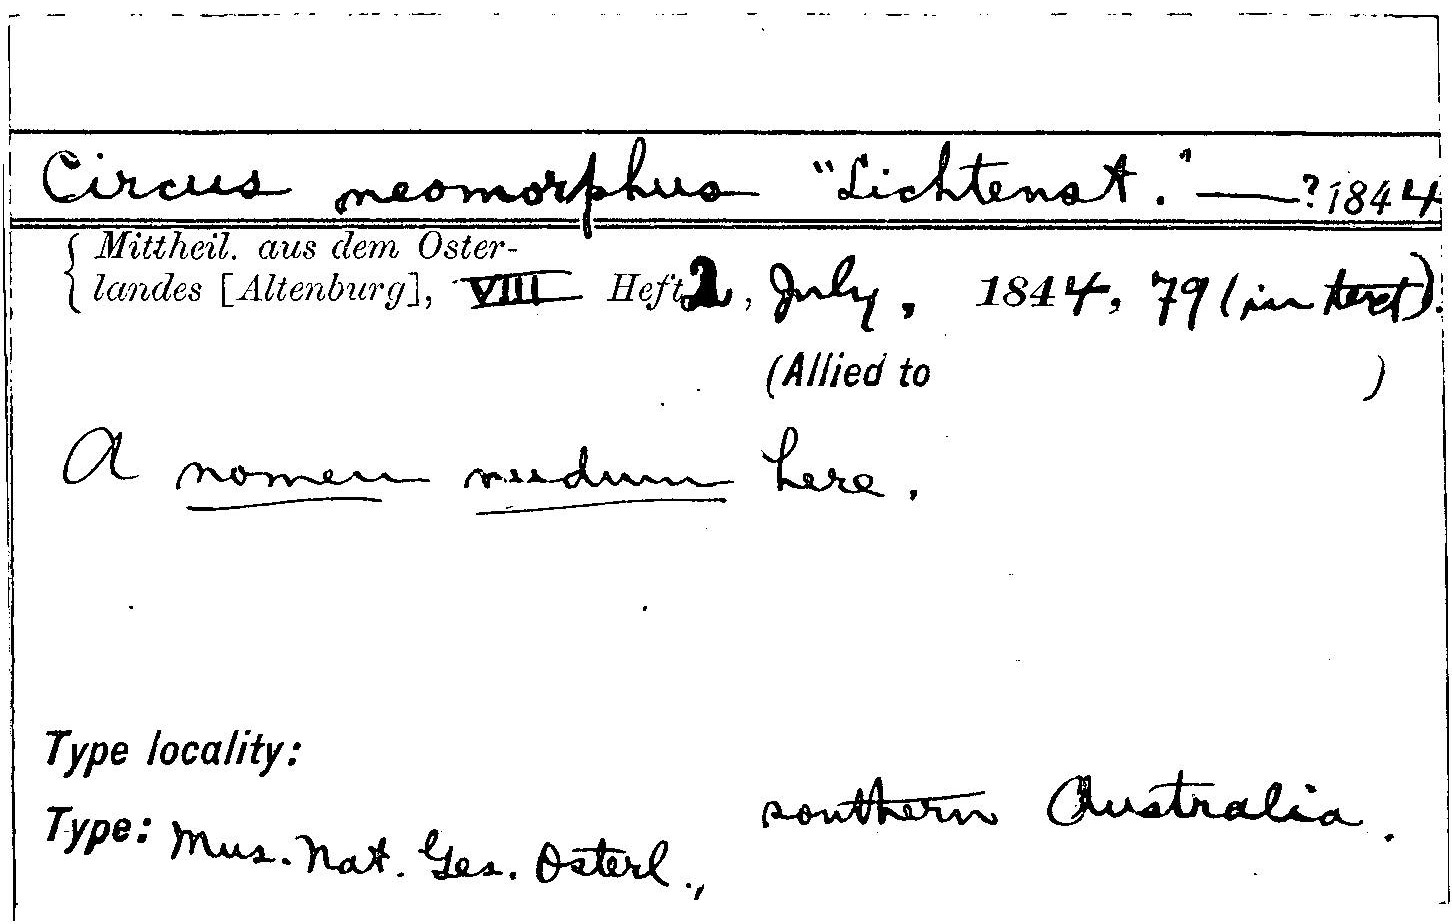 Circus neomorphus "Lichtenst." — ? 1844
Mittheil. aus dem Oster-
landes [Altenburg], VIII Heft 2, July, 1844, 79 (in text).
(Allied to )
A nomen nudum here.
Type locality:
southern Australia.
Type: Mus. Nat. Ges. Osterl.,